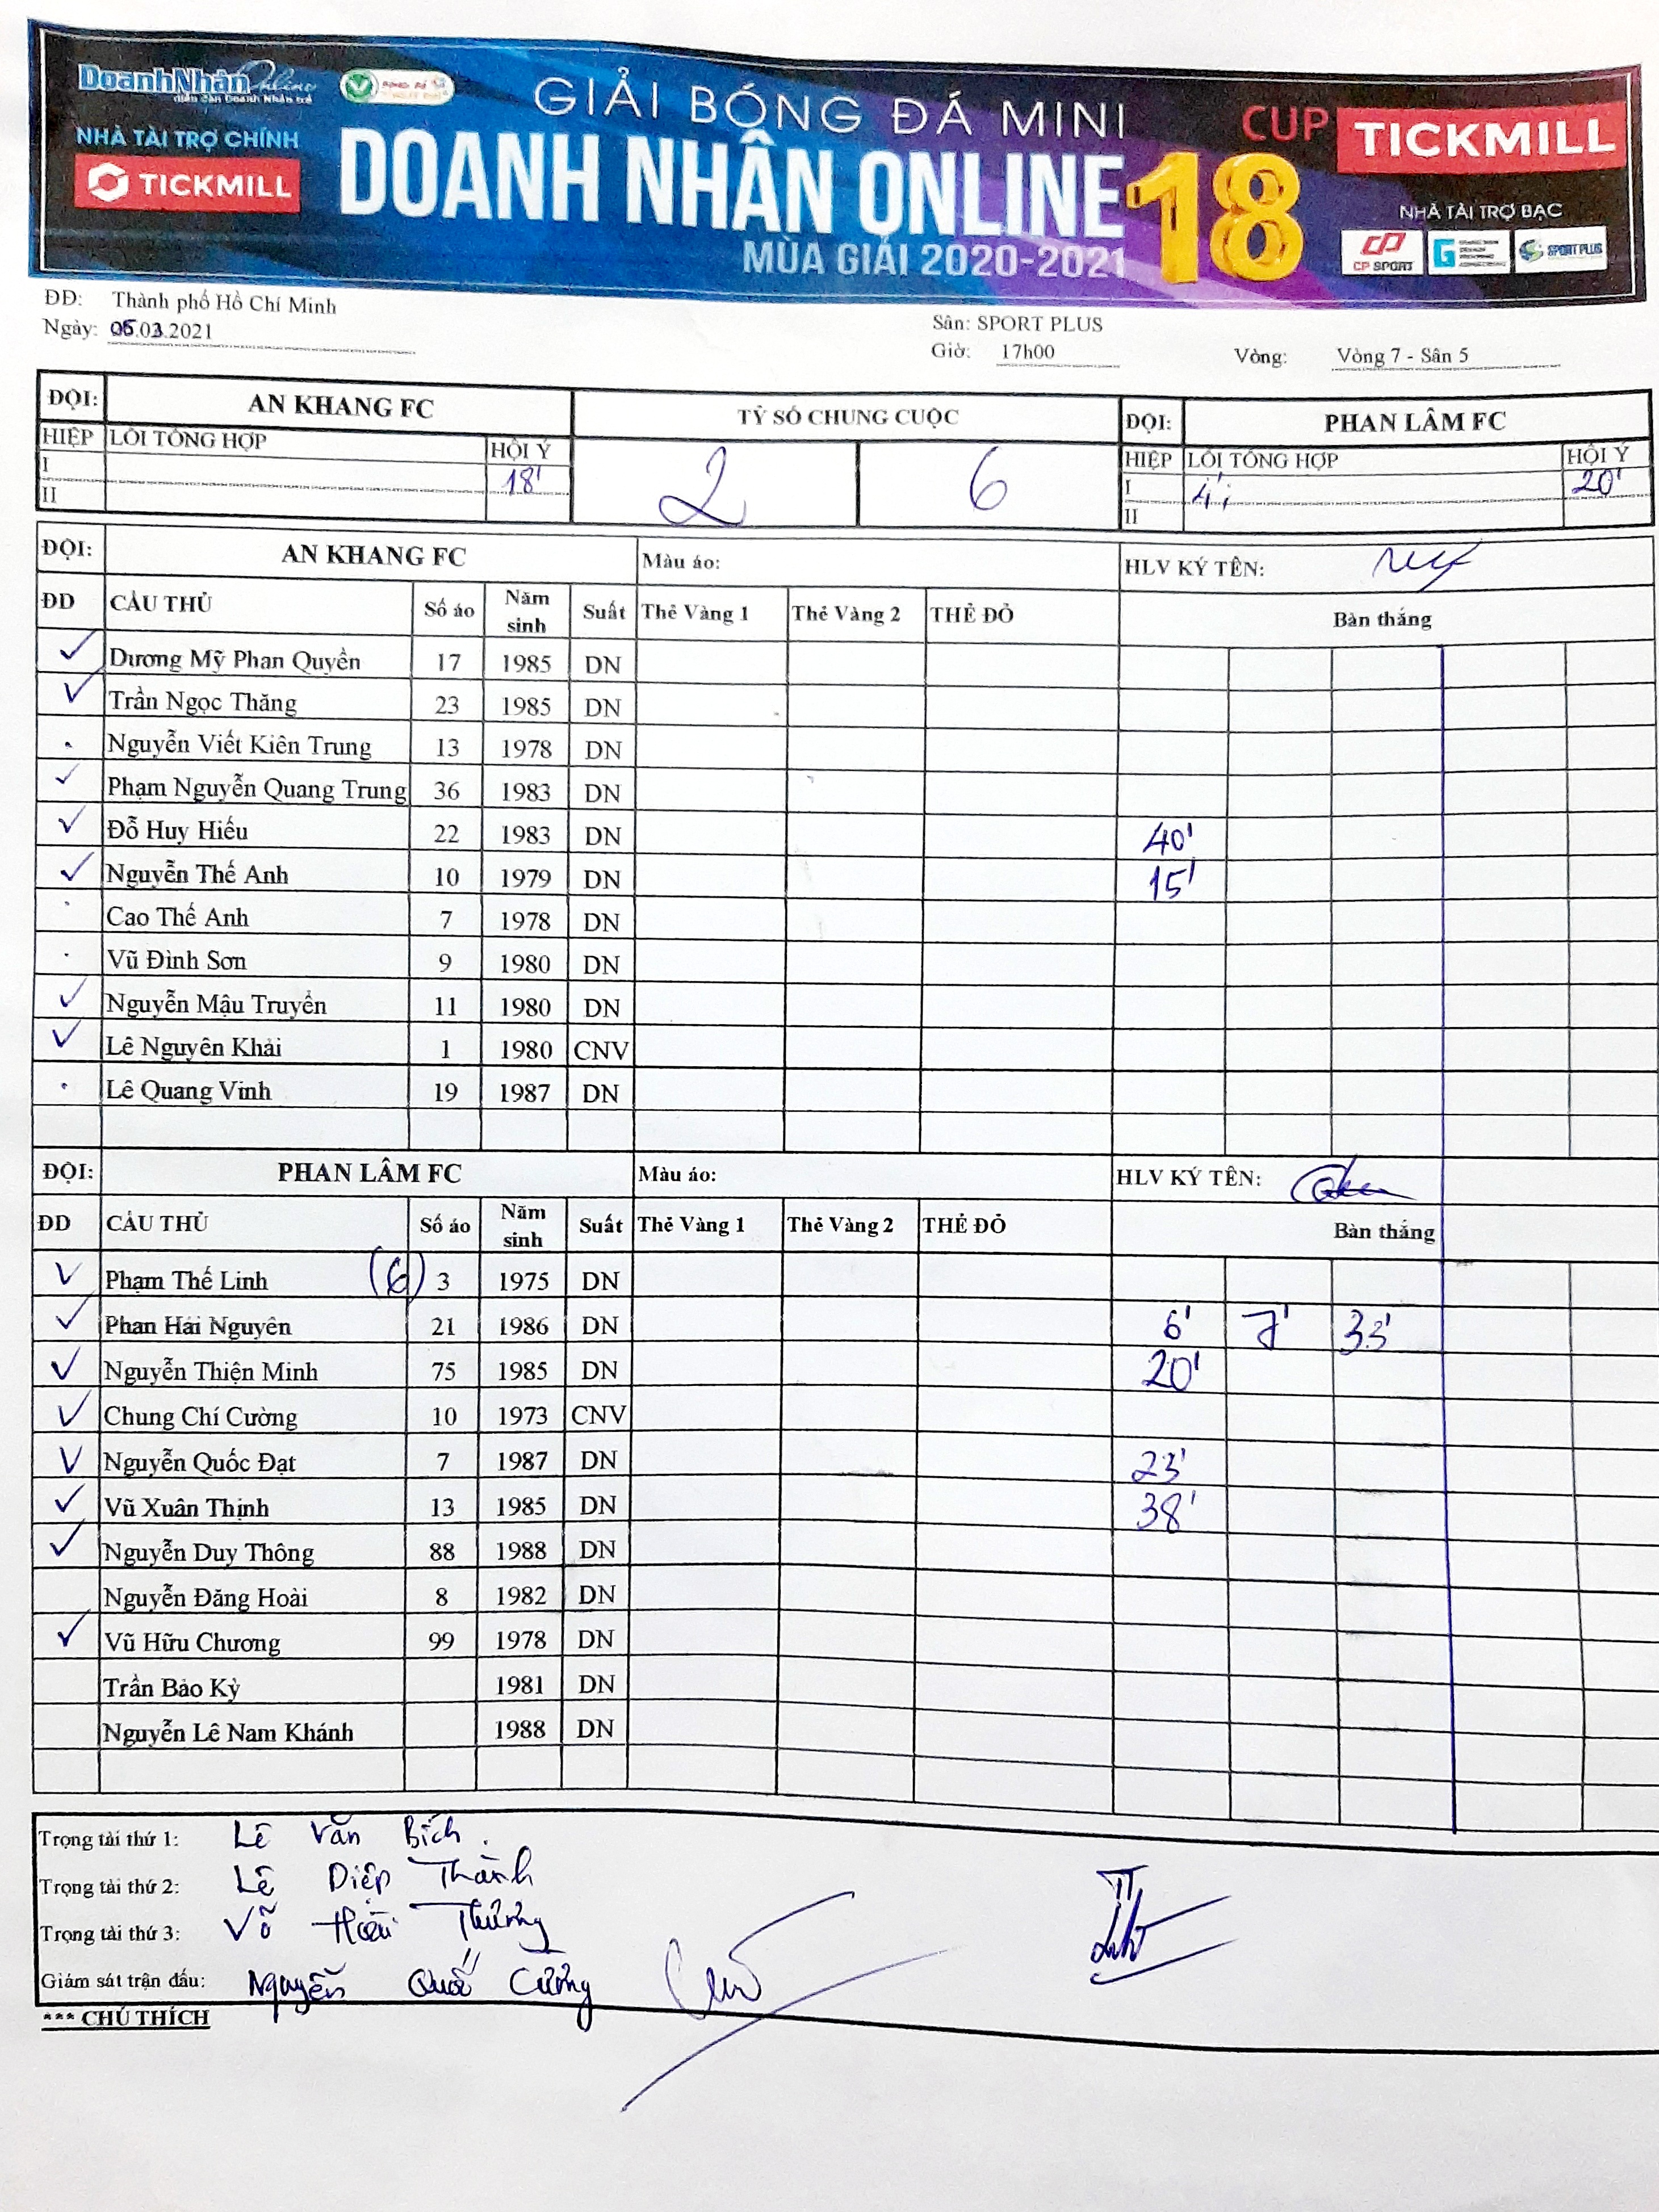 DoanhNhân Online
diễn đàn Doanh Nhân trẻ
NHÀ TÀI TRỢ CHÍNH
TICKMILL
GIẢI BÓNG ĐÁ MINI
DOANH NHÂN ONLINE 18
MÙA GIẢI 2020-2021
CUP TICKMILL
NHÀ TÀI TRỢ BẠC
CP SPORT
SPORT PLUS
ĐĐ: Thành phố Hồ Chí Minh
Ngày: 05.03.2021
Sân: SPORT PLUS
Giờ: 17h00 Vòng: Vòng 7 - Sân 5
ĐỘI: AN KHANG FC TỶ SỐ CHUNG CUỘC ĐỘI: PHAN LÂM FC
HIỆP LỖI TỔNG HỢP HỘI Ý 2 6 HIỆP LỖI TỔNG HỢP HỘI Ý
I 18' I 4'; 20'
II II
ĐỘI: AN KHANG FC Màu áo: HLV KÝ TÊN:
ĐD CẦU THỦ Số áo Năm sinh Suất Thẻ Vàng 1 Thẻ Vàng 2 THẺ ĐỎ Bàn thắng
Dương Mỹ Phan Quyền 17 1985 DN
Trần Ngọc Thăng 23 1985 DN
Nguyễn Viết Kiên Trung 13 1978 DN
Phạm Nguyễn Quang Trung 36 1983 DN
Đỗ Huy Hiếu 22 1983 DN 40'
Nguyễn Thế Anh 10 1979 DN 15'
Cao Thế Anh 7 1978 DN
Vũ Đình Sơn 9 1980 DN
Nguyễn Mậu Truyền 11 1980 DN
Lê Nguyên Khải 1 1980 CNV
Lê Quang Vinh 19 1987 DN
ĐỘI: PHAN LÂM FC Màu áo: HLV KÝ TÊN:
ĐD CẦU THỦ Số áo Năm sinh Suất Thẻ Vàng 1 Thẻ Vàng 2 THẺ ĐỎ Bàn thắng
Phạm Thế Linh (6) 3 1975 DN
Phan Hải Nguyên 21 1986 DN 6' 7' 33'
Nguyễn Thiện Minh 75 1985 DN 20'
Chung Chí Cường 10 1973 CNV
Nguyễn Quốc Đạt 7 1987 DN 23'
Vũ Xuân Thịnh 13 1985 DN 38'
Nguyễn Duy Thông 88 1988 DN
Nguyễn Đăng Hoài 8 1982 DN
Vũ Hữu Chương 99 1978 DN
Trần Bảo Kỳ 1981 DN
Nguyễn Lê Nam Khánh 1988 DN
Trọng tài thứ 1: Lê Văn Bích.
Trọng tài thứ 2: Lê Diệp Thành
Trọng tài thứ 3: Võ Hoài Thương
Giám sát trận đấu: Nguyễn Quốc Cường
*** CHÚ THÍCH